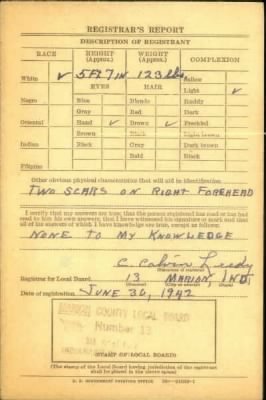 REGISTRAR'S REPORT
DESCRIPTION OF REGISTRANT
RACE HEIGHT (Approx.) WEIGHT (Approx.) COMPLEXION
White ✓ 5 Ft 7 in 123 lbs Sallow
EYES HAIR Light ✓
Negro Blue Blonde Ruddy
Gray Red Dark
Oriental Hazel ✓ Brown ✓ Freckled
Brown Black Light brown
Indian Black Gray Dark brown
Bald Black
Filipino
Other obvious physical characteristics that will aid in identification
TWO SCARS ON RIGHT FOREHEAD
I certify that my answers are true; that the person registered has read or has had
read to him his own answers; that I have witnessed his signature or mark and that
all of his answers of which I have knowledge are true, except as follows:
NONE TO MY KNOWLEDGE
C. Calvin
(Signature of registrar)
Registrar for Local Board 13 MARION, IND.
(Number) (City or county) (State)
Date of registration JUNE 30, 1942
MARION COUNTY LOCAL BOARD
Number 13
(STAMP OF LOCAL BOARD)
(The stamp of the Local Board having jurisdiction of the registrant
shall be placed in the above space)
U. S. GOVERNMENT PRINTING OFFICE